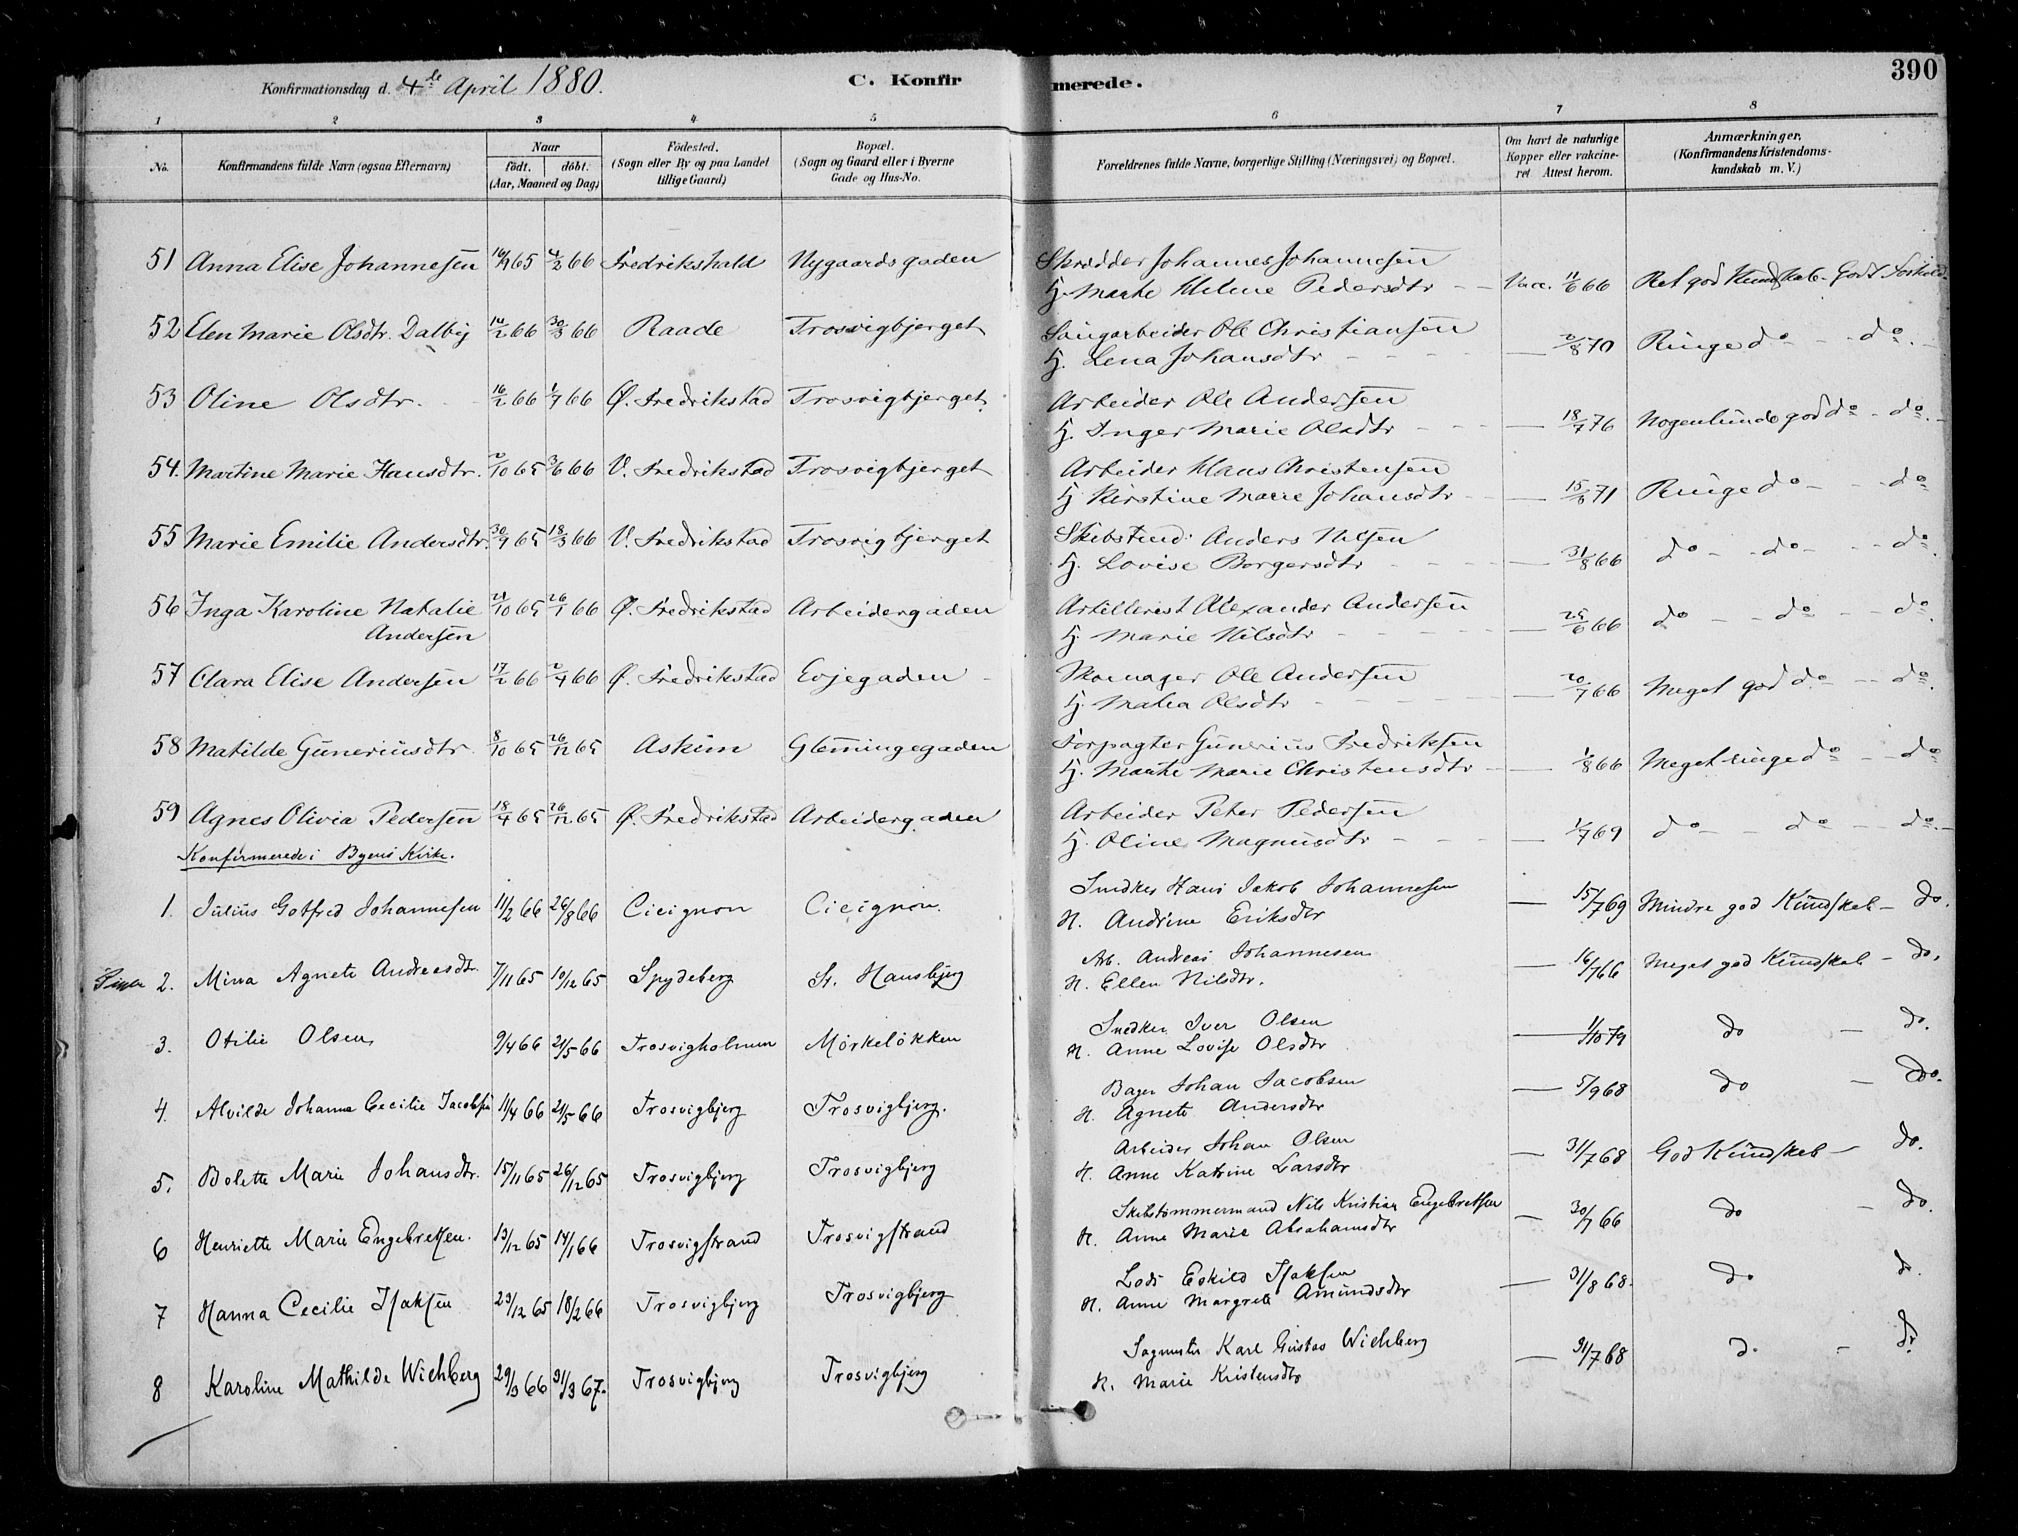 Konfirmationsdag d. 4de April 1880.
C. Konfirmerede.
390
1 2 3 4 5 6 7 8
No.
Konfirmandens fulde Navn (ogsaa Efternavn)
Naar
født. døbt.
(Aar, Maaned og Dag)
Fødested.
(Sogn eller By og paa Landet
tillige Gaard)
Bopæl.
(Sogn og Gaard eller i Byerne
Gade og Hus-No.
Forældrenes fulde Navne, borgerlige Stilling (Næringsvei) og Bopæl.
Om havt de naturlige
Kopper eller vakcine-
ret Attest herom.
Anmærkninger.
(Konfirmandens Kristendoms-
kundskab m. V.)
51 Anna Elise Johannesen 65 4/2 66 Fredrikshald Nygaardsgaden Skrædder Johannes Johannesen
H. Marthe Helene Pedersdtr - - Vacc. 11/6 66 Ret god Kundskab - Godt Forhold
52 Elen Marie Olsdtr. Dalby 66 30/3 66 Raade Trosvigbjerget Saugarbeider Ole Christiansen
H. Lena Johansdtr - - - - — 2/8 70 Ringe do - - do. -
53 Oline Olsdtr. 16/2 66 1/7 66 Ø. Fredrikstad Trosvigbjerget Arbeider Ole Andersen
H. Inger Marie Olsdtr - - - — 18/7 76 Nogenlunde god do - do. -
54. Martine Marie Hansdtr. 2/10 65 3/6 66 V. Fredrikstad Trosvigbjerget Arbeider Hans Christensen
H. Kirstine Marie Johansdtr - - — 71 Ringe do - - - do
55 Marie Emilie Andersdtr. 30/9 65 18/3 66 V. Fredrikstad Trosvigbjerget Skibstimd. Anders Nilsen
H. Lovise Borgersdtr - - - — 31/8 66 do - - do - - - do.
56 Inga Karoline Natalie 10 65 26/1 66 Ø. Fredrikstad Arbeidergaden Artillerist Alexander Andersen
Andersen H. Marie Nilsdtr - - - - — 25/6 66 do - - do - - do.
57 Clara Elise Andersen 17/2 66 2/4 66 Ø. Fredrikstad Evjegaden - Skomager Ole Andersen
H. Malea Olsdtr - - - - — 20/7 66 Meget god do - - do.
58 Matilde Guneriusdtr. 8/10 65 26/12 65 Askim Glemmingegaden Forpagter Gunerius Fredriksen
H. Marthe Marie Christensdtr - — 1/8 66 Meget ringe do - - do
59 Agnes Olivia Pedersen 18/4 65 26/12 65 Ø. Fredrikstad Arbeidergaden Arbeider Peter Pedersen
H. Oline Magnusdtr - - - — 7 69 do - - do - - do. -
Konfirmerede i Byens Kirke.
1. Julius Gotfred Johannesen 11/2 66 26/8 66 Cicignon Cicignon. Snedker Hans Jakob Johannesen
H. Andrine Eriksdtr — 15/7 69 Mindre god Kundskab - do.
2. Mina Agnete Andreasdtr. 7/11 65 10/12 65 Spydeberg St. Hansbjerg Arb. Andreas Johannesen
H. Ellen Nilsdtr. — 16/7 66 Meget god Kundskab - do.
3. Otilie Olsen 9/4 66 21/5 66 Trosvigholmen Mørkeløkken Snedker Iver Olsen
H. Anne Lovise Olsdtr — 1/10 79 do - do.
4. Alvilde Johanne Cecilie Jacobsen 11/4 66 21/5 66 Trosvigbjerg Trosvigbjerg. Bager Johan Jacobsen
H. Agnete Andersdtr — 5/9 68 do - do.
5. Bolette Marie Johansdtr. 15/11 65 26/12 65 Trosvigbjerg Trosvigbjerg Arbeider Johan Olsen
H. Anne Katrine Larsdtr — 31/7 68 God Kundskab - do.
6 Henriette Marie Engebretsen. 13/12 65 14/1 66 Trosvigstrand Trosvigstrand Skibstømmermand Nils Kristian Engebretsen
H. Anne Marie Abrahamsdtr — 30/7 66 do - do.
7 Hanna Cecilie Isaksen 23/12 65 18/2 66 Trosvigbjerg Trosvigbjerg Lods Eskild Isaksen
H. Anne Margrete Amundsdtr — 31/8 68. do
8 Karoline Mathilde Wichberg 29/3 66 31/3 67. Trosvigbjerg Trosvigbjerg Sagmester Karl Gustav Wichberg
H. Marie Kristensdtr — 31/7 68 do - do